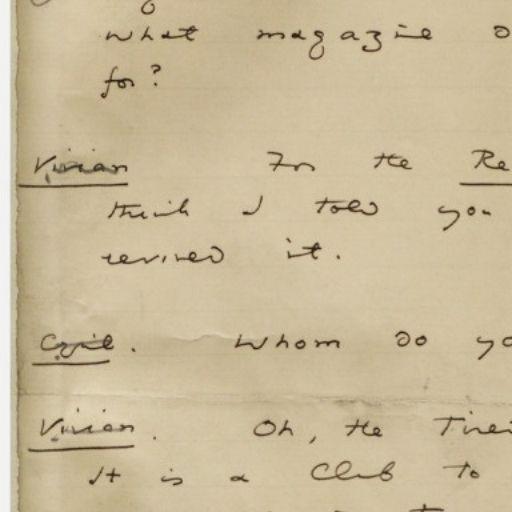 what magazie
for?
Vivian For the Re
think I told you
revived it.
Cyril. Whom do yo
Vivian. Oh, the Tire
It is a Club to